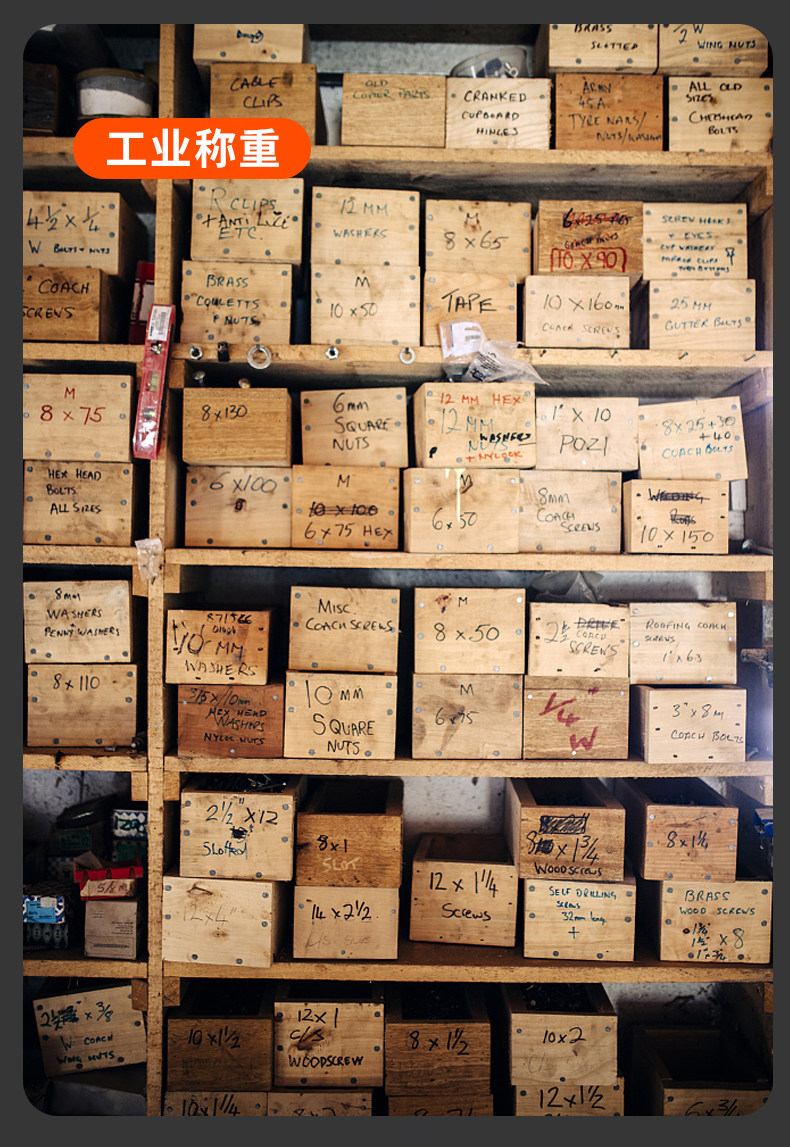 BRASS
SLOTTED
WING NUTS
CABLE
CLIPS
OLD
CRANKED
CUPBOARD
HINGES
ALL OLD
SIZES
BOLTS
工业称重
4½ × ¼
W BOLTS + NUTS
R CLIPS
ETC.
12 MM
WASHERS
M
8 x 65
10 X 90
SCREW HOOKS
+ EYES
CUP WASHERS
MIRROR CLIPS
COACH
SCREWS
BRASS
+ NUTS
M
10 x 50
TAPE
10 X 160mm
COACH SCREWS
25 MM
GUTTER BOLTS
M
8 x 75
8 x 130
6mm
SQUARE
NUTS
12 MM HEX
12 MM
NUTS
WASHERS
+ NYLOCK
1" X 10
POZI
8 x 25 + 30
+ 40
COACH BOLTS
HEX HEAD
BOLTS
ALL SIZES
6 X 100
M
10 x 100
6 x 75 HEX
M
6 x 50
8mm
COACH
SCREWS
10 X 150
8mm
WASHERS
PENNY WASHERS
10 MM
WASHERS
MISC.
COACH SCREWS
M
8 x 50
2½
COACH
SCREWS
ROOFING COACH
SCREWS
8 x 110
HEX HEAD
WASHERS
NYLOC NUTS
10 MM
SQUARE
NUTS
M
6 x 75
1/4"
W
3" x 8 M
COACH BOLTS
2½" X 12
Slotted
8 x 1
SLOT
12 x 1¼
Screws
8 x 1¾
WOODSCREWS
8 x 1¼
12 x 4"
14 x 2½
SELF DRILLING
SCREWS
32mm long
+
BRASS
WOOD SCREWS
x 8
x ⅜
W COACH
WING NUTS
10 x 1½
12 x 1
C/S
WOODSCREW
8 x 1½
10 x 2
10 x 1¼
12 x 1½